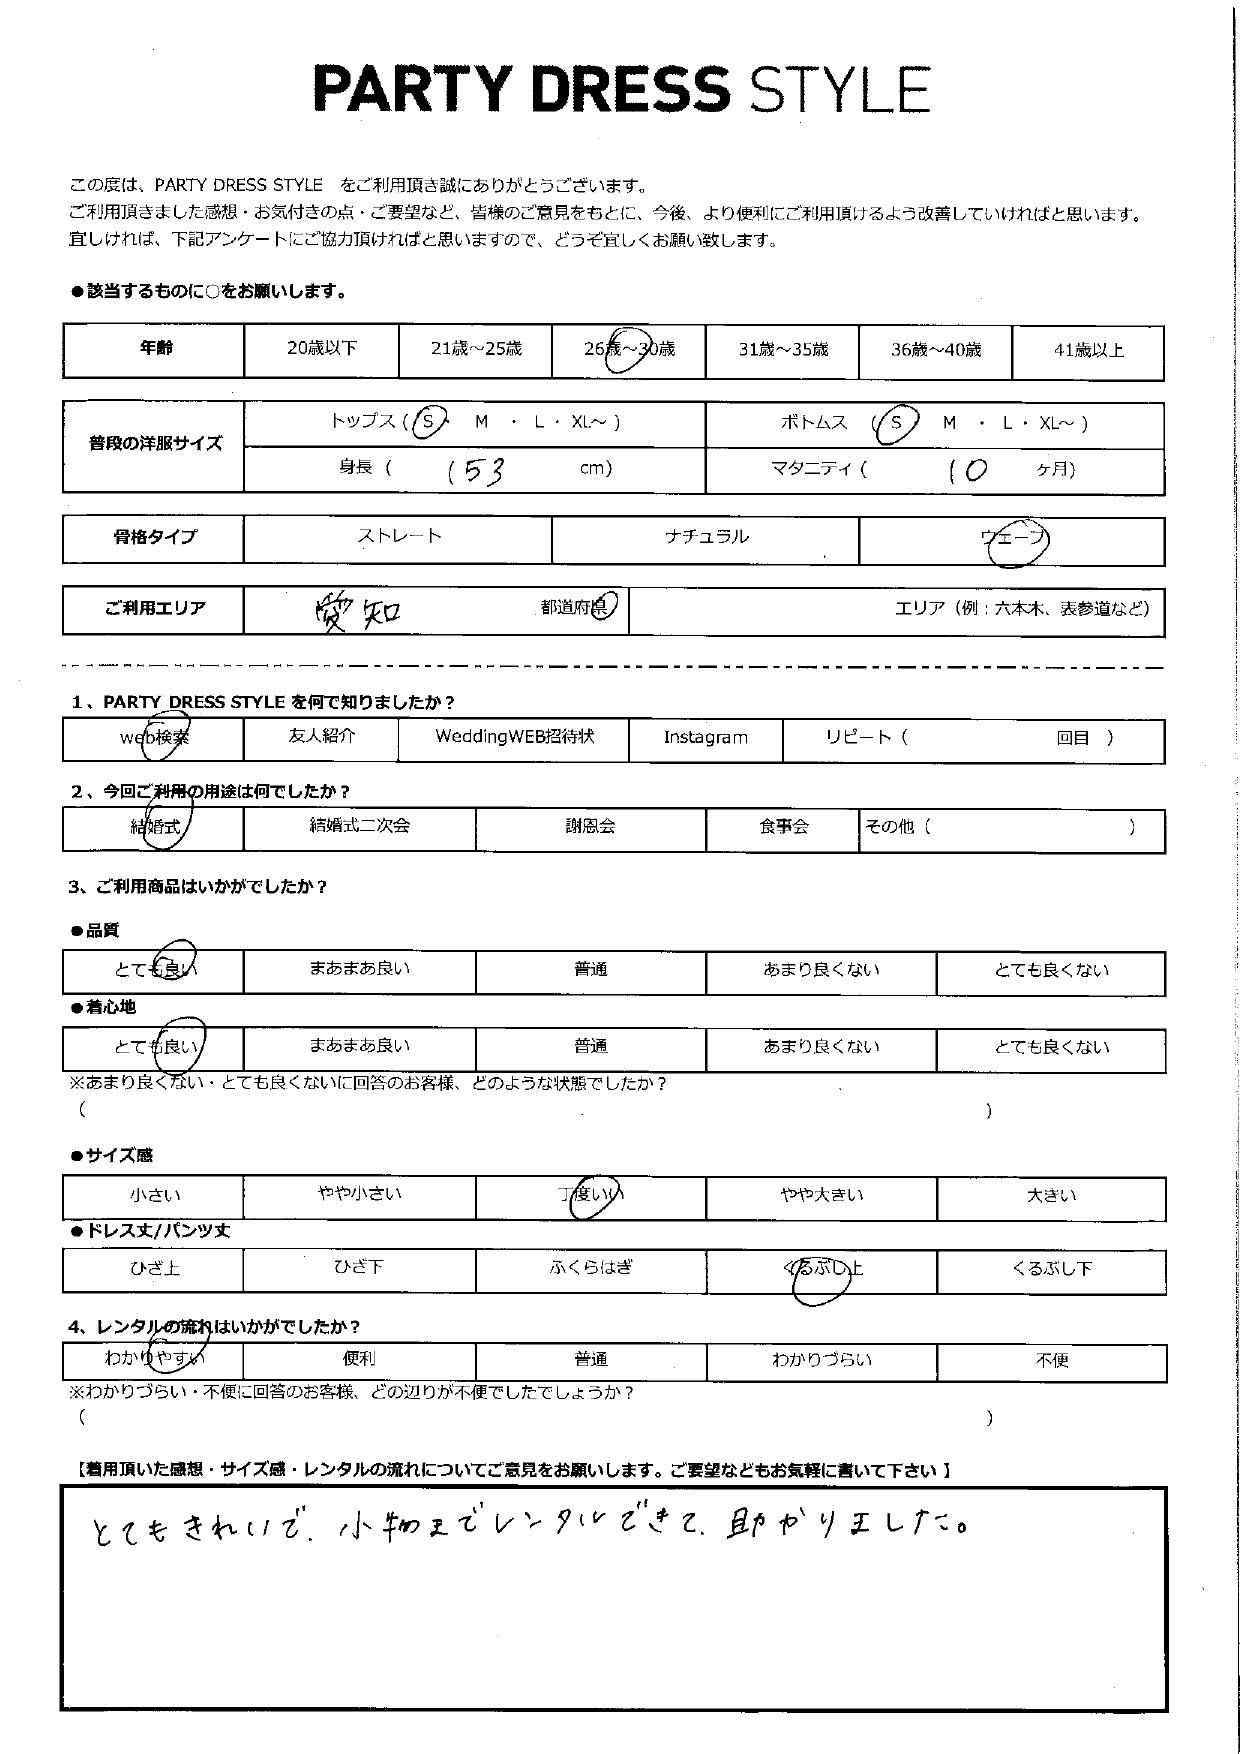 PARTY DRESS STYLE
この度は、PARTY DRESS STYLE　をご利用頂き誠にありがとうございます。
ご利用頂きました感想・お気付きの点・ご要望など、皆様のご意見をもとに、今後、より便利にご利用頂けるよう改善していければと思います。
宜しければ、下記アンケートにご協力頂ければと思いますので、どうぞ宜しくお願い致します。
●該当するものに○をお願いします。
年齢 20歳以下 21歳～25歳 26歳～30歳 31歳～35歳 36歳～40歳 41歳以上
普段の洋服サイズ トップス ( S ・ M ・ L ・ XL～ ) ボトムス ( S ・ M ・ L ・ XL～ )
身長 ( 153 cm) マタニティ ( 10 ヶ月)
骨格タイプ ストレート ナチュラル ウェーブ
ご利用エリア 愛知 都道府県 エリア（例：六本木、表参道など）
1、PARTY DRESS STYLE を何で知りましたか？
web検索 友人紹介 WeddingWEB招待状 Instagram リピート（ 回目 ）
2、今回ご利用の用途は何でしたか？
結婚式 結婚式二次会 謝恩会 食事会 その他（ ）
3、ご利用商品はいかがでしたか？
●品質
とても良い まあまあ良い 普通 あまり良くない とても良くない
●着心地
とても良い まあまあ良い 普通 あまり良くない とても良くない
※あまり良くない・とても良くないに回答のお客様、どのような状態でしたか？
（ ）
●サイズ感
小さい やや小さい 丁度いい やや大きい 大きい
●ドレス丈/パンツ丈
ひざ上 ひざ下 ふくらはぎ くるぶし上 くるぶし下
4、レンタルの流れはいかがでしたか？
わかりやすい 便利 普通 わかりづらい 不便
※わかりづらい・不便に回答のお客様、どの辺りが不便でしたでしょうか？
（ ）
【着用頂いた感想・サイズ感・レンタルの流れについてご意見をお願いします。ご要望などもお気軽に書いて下さい 】
とてもきれいで、小物までレンタルできて、助かりました。